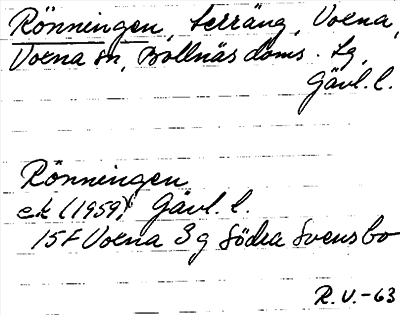 Rönningen, terräng, Voxna,
Voxna sn, Bollnäs doms. tg,
Gävl. l.
Rönningen
ek (1959) Gävl. l.
15F Voxna 3g Södra Svensbo
R. V. -63